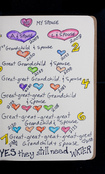 MY SPOUSE
& SPOUSE
& SPOUSE
Grandchild & Spouse
3
Great Grandchild & Spouse
Great-great Grandchild
& Spouse
4
Great-great-great Grandchild
& Spouse
6
Great-great-great-great
Grandchild & Spouse
Great-great-great-great-great
Grandchild & Spouse
YES they still need WATER